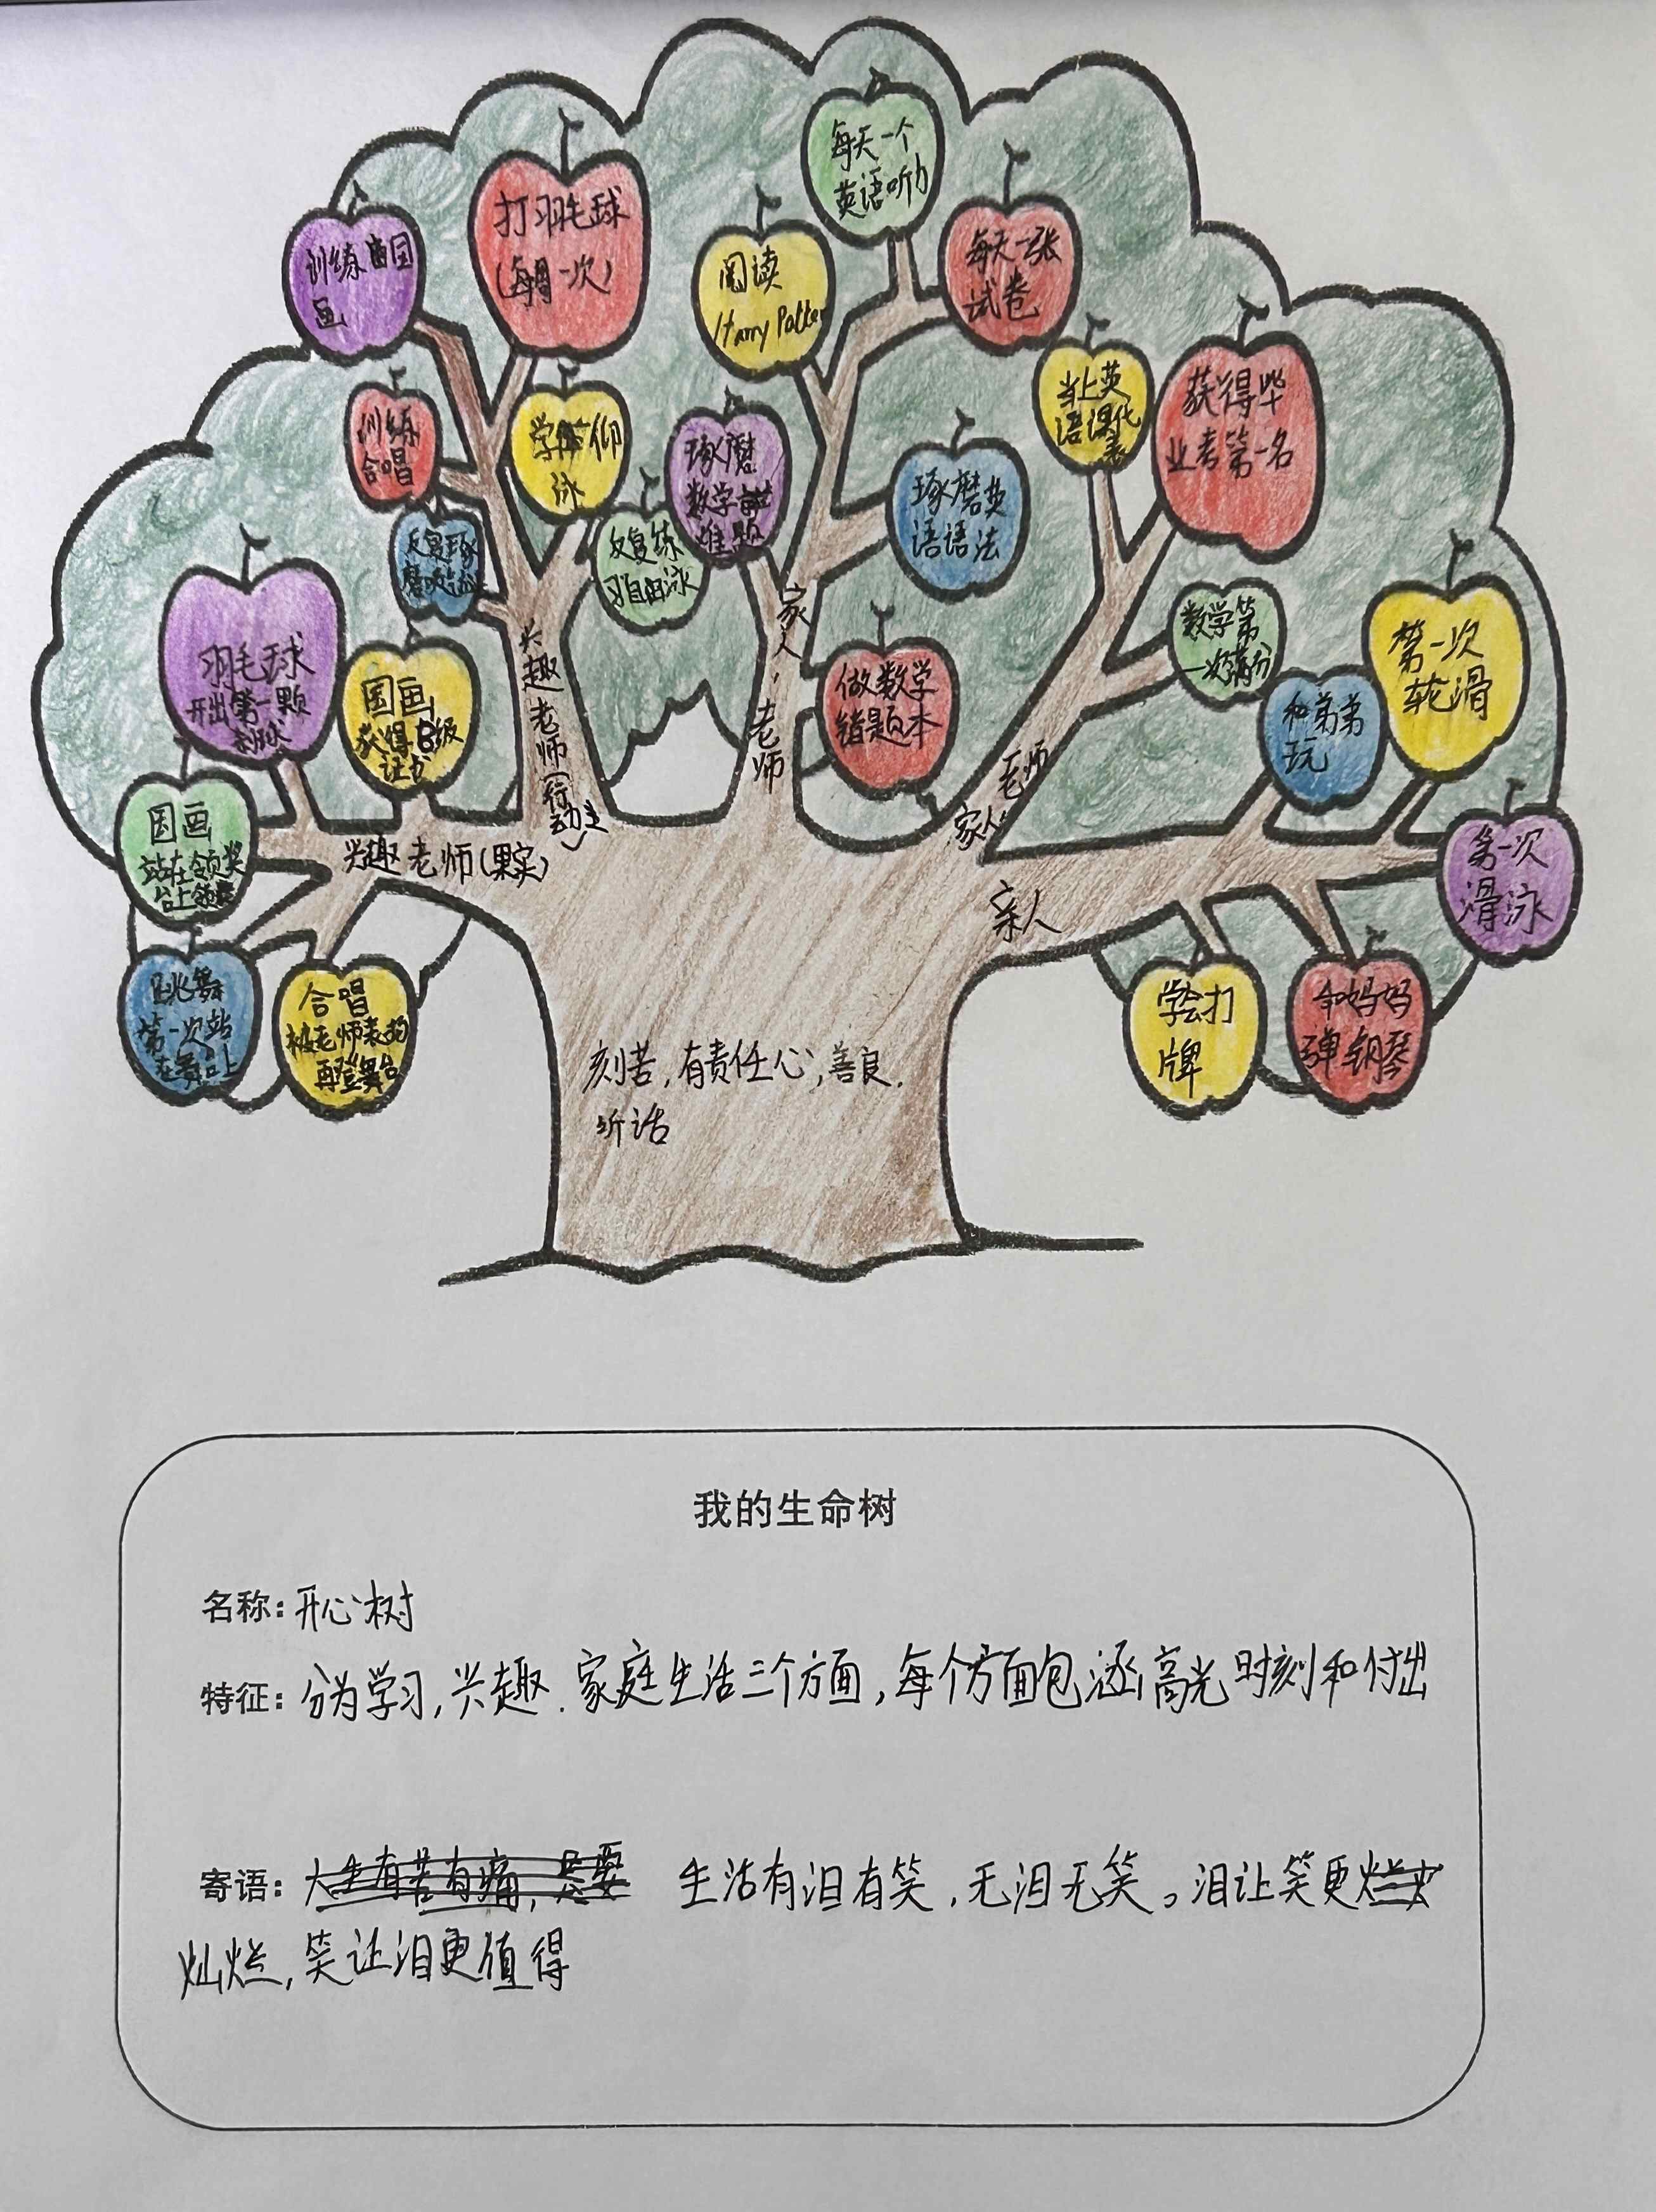 每天一个
英语听力
打羽毛球
(每周一次)
训练国
画
阅读
Harry Potter
每天一张
试卷
当上英
语课代
表
获得毕
业考第一名
训练
合唱
学会仰
泳
琢磨
数学
难题
琢磨英
语语法
反复琢
反复练
习自由泳
羽毛球
开出第一颗
国画
获得B级
证书
数学第
一次满分
第一次
轮滑
和弟弟
玩
做数学
错题本
国画
站在领奖
台上领奖
第一次
滑泳
跳舞
第一次站
在舞台上
合唱
被老师表扬
再登舞台
学会打
牌
和妈妈
弹钢琴
兴趣老师(行动)
家人,老师
家人 老师
兴趣老师(果实)
亲人
刻苦,有责任心,善良.
听话
我的生命树
名称:开心树
特征:分为学习,兴趣.家庭生活三个方面,每个方面包涵高光时刻和付出
寄语:人生有苦有痛, 生活有泪有笑,无泪无笑。泪让笑更
灿烂,笑让泪更值得